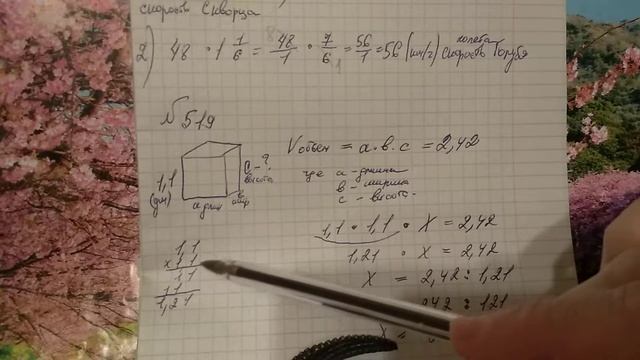 скорость Скворца
2) 48 · 1 1/6 = 48/1 · 7/6 = 56/1 = 56 (км/г) скорость полета Голубя
8
1
№ 519
V объем = a · в · c = 2,42
где a - длина
в - ширина
c - высота.
c - ?
высота
1,1
(дм)
a длин
в
шир
1,1 · 1,1 · X = 2,42
1,21 · X = 2,42
X = 2,42 : 1,21
242 : 121
X =
1,1
x 1,1
1 1
1 1
1,2 1